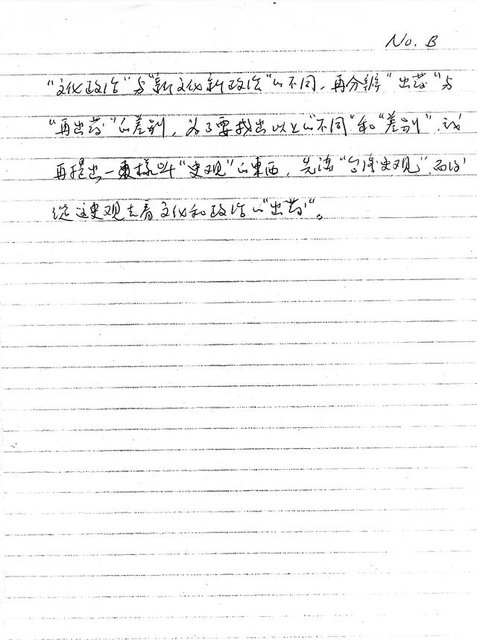 No. B
"文化政治"与"新文化新政治"的不同，再分辨"出发"与
"再出发"的差别，为了要找出以上的"不同"和"差别"，
再提出一東樣叫"史观"的東西，先谈"台湾史观"，
从这史观去看文化和政治的"出发"。